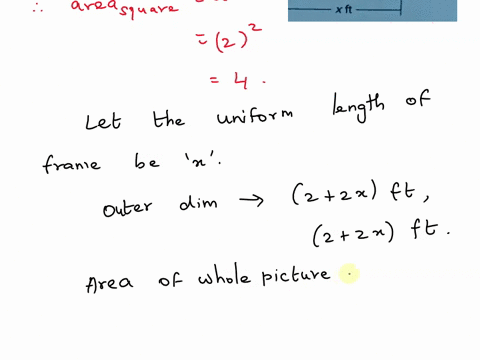 ∴ area square =
= (2)²
= 4 .
x ft
Let the uniform length of
frame be 'x'.
Outer dim → (2+2x) ft,
(2+2x) ft.
Area of whole picture